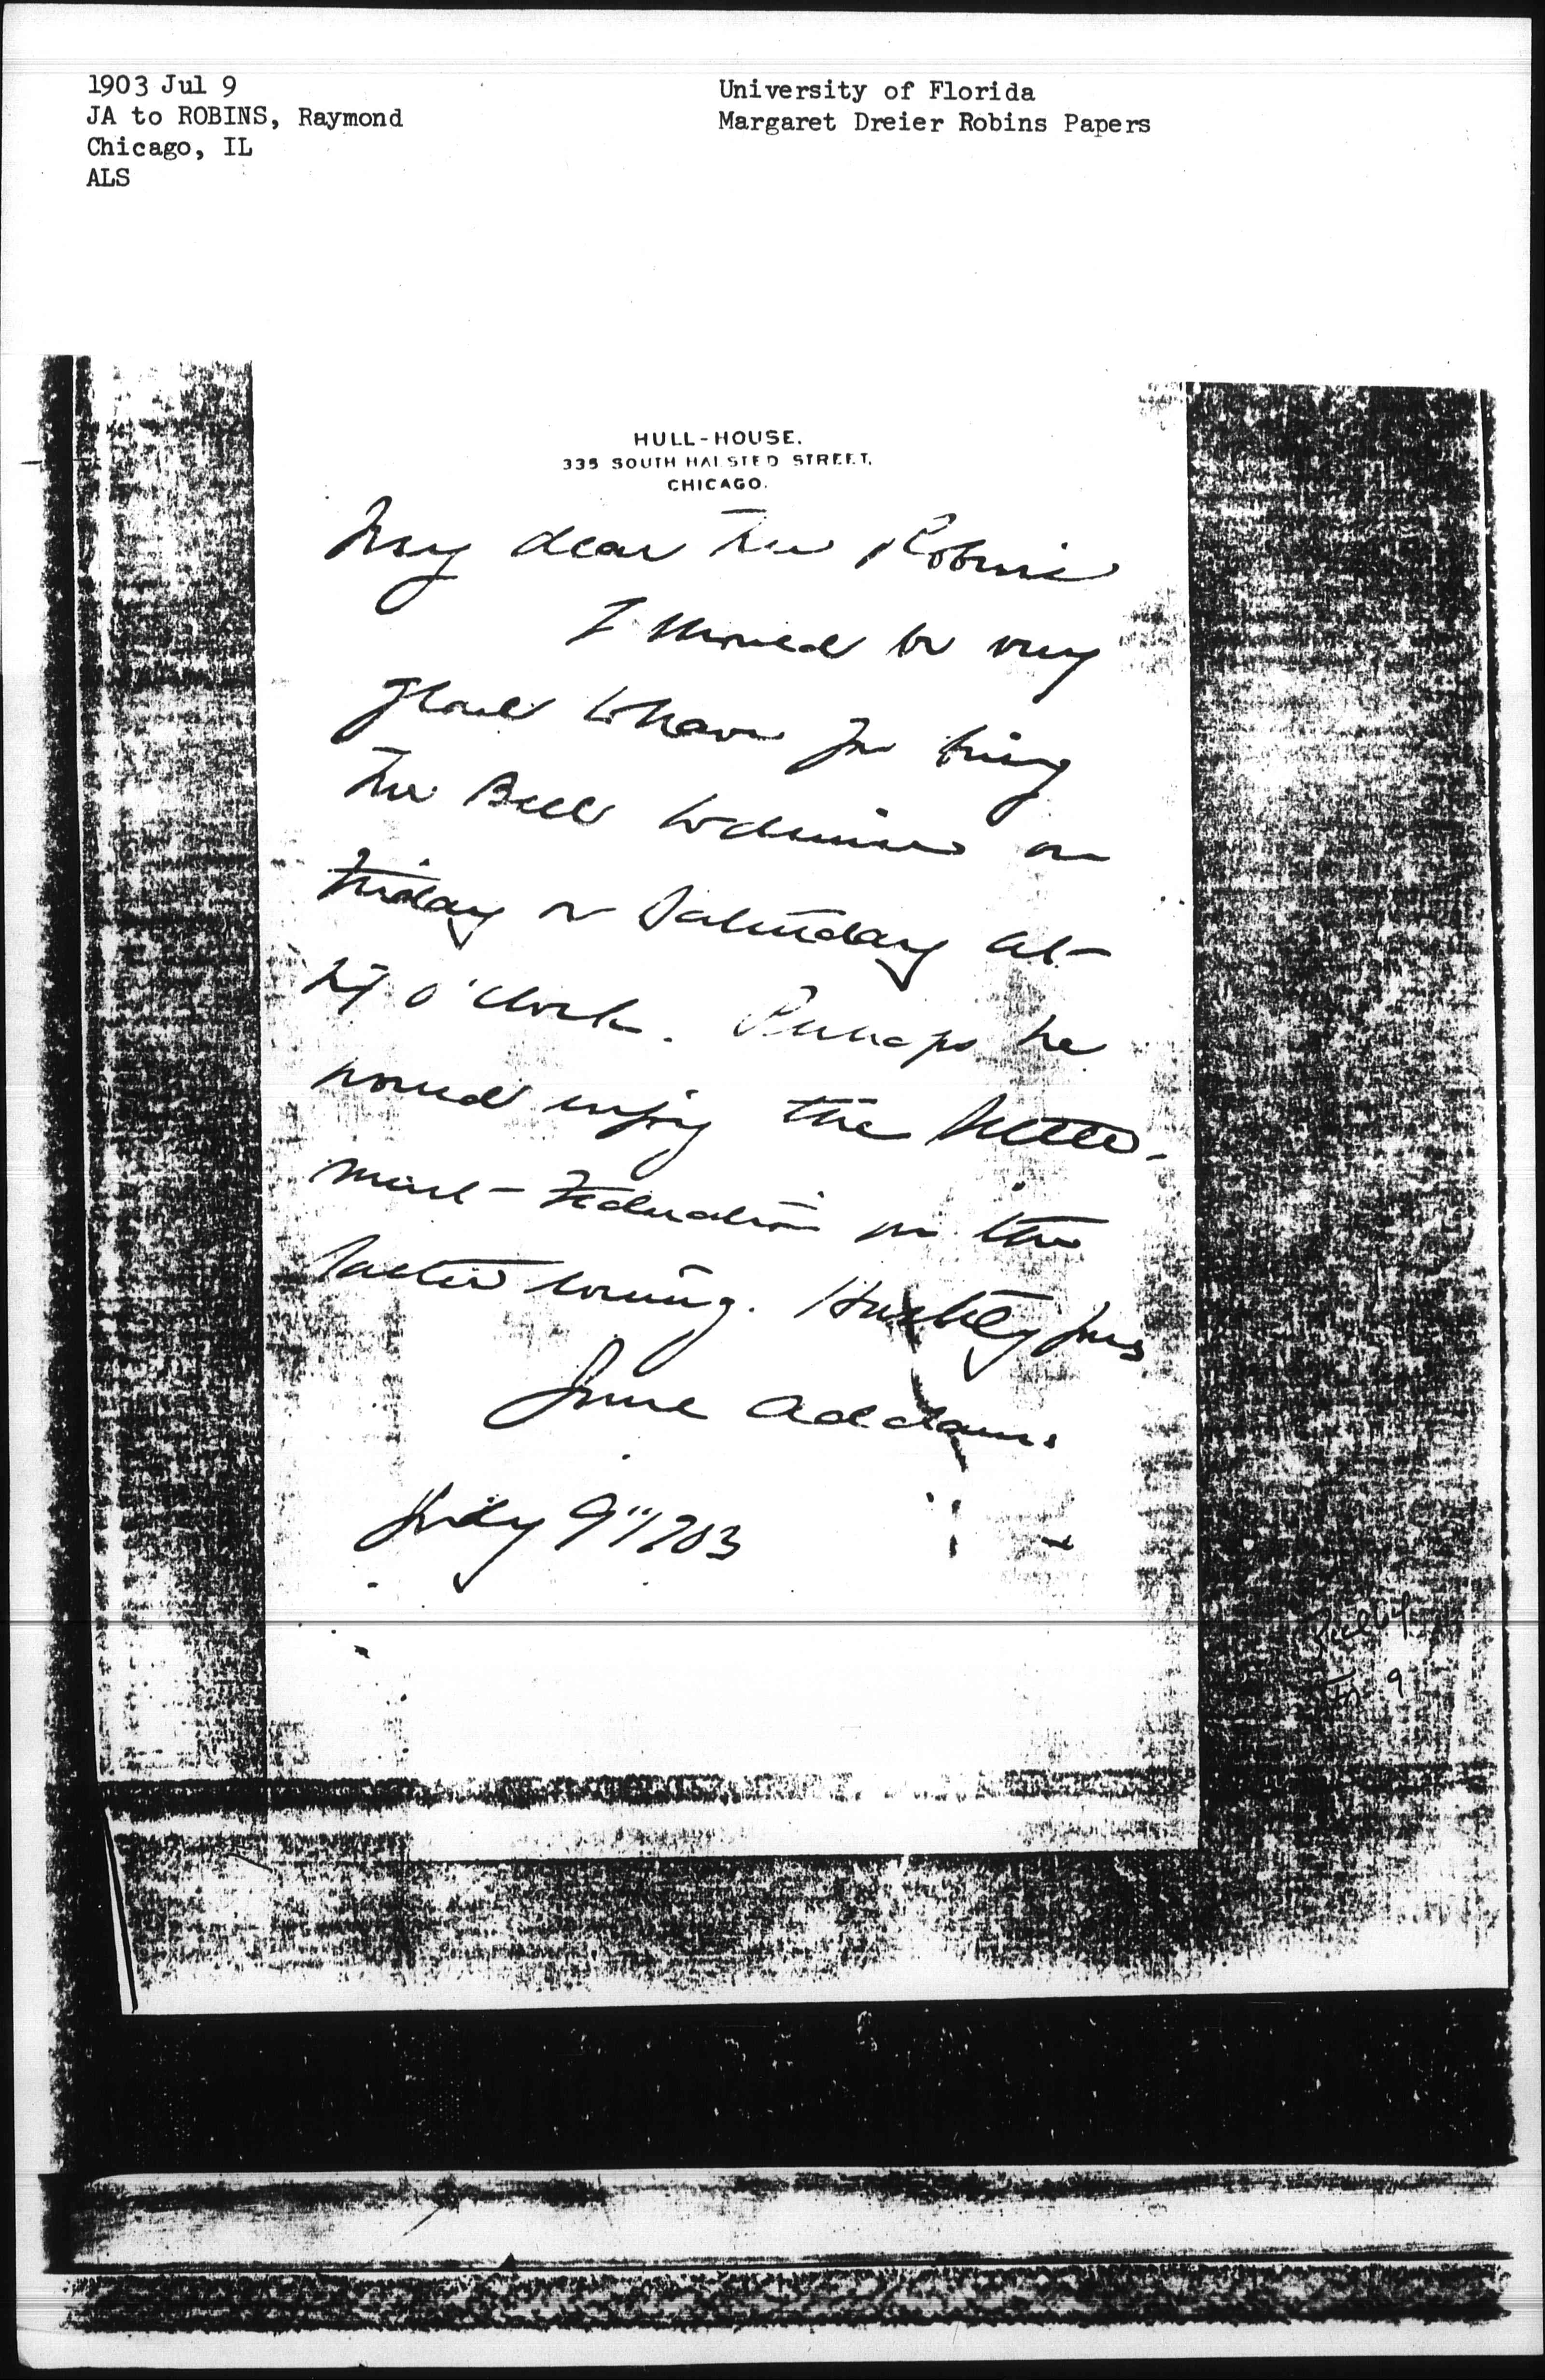 1903 Jul 9
JA to ROBINS, Raymond
Chicago, IL
ALS
University of Florida
Margaret Dreier Robins Papers
HULL-HOUSE.
335 SOUTH HALSTED STREET,
CHICAGO.
My dear Mr Robins
I should be very
glad to have you bring
Mr Bell to dinner on
Friday or Saturday at
six o'clock. Perhaps he
would enjoy the Settle-
ment Federation on the
latter evening. Hastily yours
Jane Addams.
July 9" 1903
9